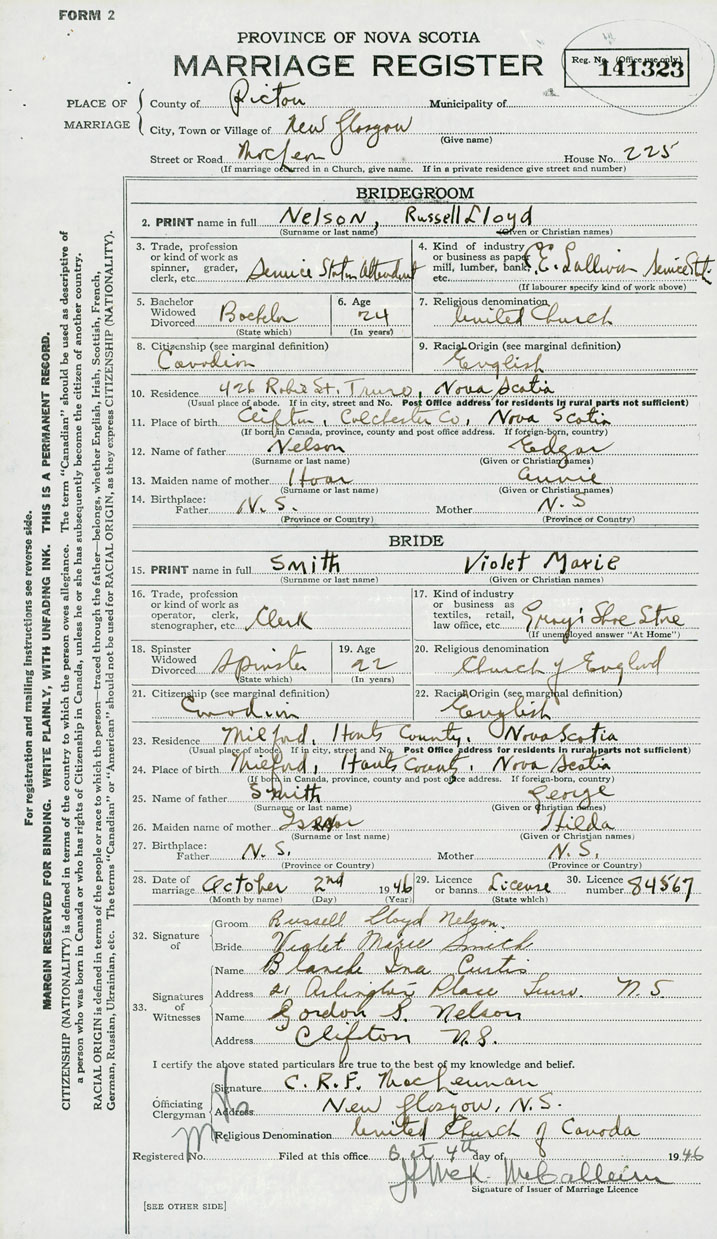 FORM 2
PROVINCE OF NOVA SCOTIA
MARRIAGE REGISTER
Reg. No. (Office use only) 141323
PLACE OF MARRIAGE
County of Pictou Municipality of
City, Town or Village of New Glasgow
(Give name)
Street or Road McLean House No. 225
(If marriage occurred in a Church, give name. If in a private residence give street and number)
BRIDEGROOM
2. PRINT name in full Nelson, Russell Lloyd
(Surname or last name) (Given or Christian names)
3. Trade, profession or kind of work as spinner, grader, clerk, etc. Service Station Attendant
4. Kind of industry or business as paper mill, lumber, bank, etc. E. Sullivan Service Stat.
(If labourer specify kind of work above)
5. Bachelor Widowed Divorced Bachelor
(State which)
6. Age 24
(In years)
7. Religious denomination United Church
8. Citizenship (see marginal definition) Canadian
9. Racial Origin (see marginal definition) English
10. Residence 426 Robie St. Truro, Nova Scotia
(Usual place of abode. If in city, street and No. Post Office address for residents in rural parts not sufficient)
11. Place of birth Clifton, Colchester Co, Nova Scotia
(If born in Canada, province, county and post office address. If foreign-born, country)
12. Name of father Nelson Edgar
(Surname or last name) (Given or Christian names)
13. Maiden name of mother Hoar Annie
(Surname or last name) (Given or Christian names)
14. Birthplace: Father N. S. Mother N. S
(Province or Country) (Province or Country)
BRIDE
15. PRINT name in full Smith Violet Marie
(Surname or last name) (Given or Christian names)
16. Trade, profession or kind of work as operator, clerk, stenographer, etc. Clerk
17. Kind of industry or business as textiles, retail, law office, etc. Gray's Shoe Store
(If unemployed answer "At Home")
18. Spinster Widowed Divorced Spinster
(State which)
19. Age 22
(In years)
20. Religious denomination Church of England
21. Citizenship (see marginal definition) Canadian
22. Racial Origin (see marginal definition) English
23. Residence Milford, Hants County, Nova Scotia
(Usual place of abode. If in city, street and No. Post Office address for residents in rural parts not sufficient)
24. Place of birth Milford, Hants County, Nova Scotia
(If born in Canada, province, county and post office address. If foreign-born, country)
25. Name of father Smith George
(Surname or last name) (Given or Christian names)
26. Maiden name of mother Hilda
(Surname or last name) (Given or Christian names)
27. Birthplace: Father N. S. Mother N. S.
(Province or Country) (Province or Country)
28. Date of marriage October 2nd 1946
(Month by name) (Day) (Year)
29. Licence or banns License
(State which)
30. Licence number 84567
32. Signature of
Groom Russell Lloyd Nelson.
Bride Violet Marie Smith
33. Signatures of Witnesses
Name Blanche Ina Curtis
Address 21 Arlington Place Truro. N. S.
Name Gordon S. Nelson
Address Clifton N.S.
I certify the above stated particulars are true to the best of my knowledge and belief.
Officiating Clergyman
Signature C. R. F. MacLennan
Address New Glasgow, N.S.
Religious Denomination United Church of Canada
Registered No. Filed at this office Oct 4th day of 1946
Signature of Issuer of Marriage Licence
[SEE OTHER SIDE]
For registration and mailing instructions see reverse side.
MARGIN RESERVED FOR BINDING. WRITE PLAINLY, WITH UNFADING INK. THIS IS A PERMANENT RECORD.
CITIZENSHIP (NATIONALITY) is defined in terms of the country to which the person owes allegiance. The term "Canadian" should be used as descriptive of
a person who was born in Canada or who has rights of Citizenship in Canada, unless he or she has subsequently become the citizen of another country.
RACIAL ORIGIN is defined in terms of the people or race to which the person—traced through the father—belongs, whether English, Irish, Scottish, French,
German, Russian, Ukrainian, etc. The terms "Canadian" or "American" should not be used for RACIAL ORIGIN, as they express CITIZENSHIP (NATIONALITY).